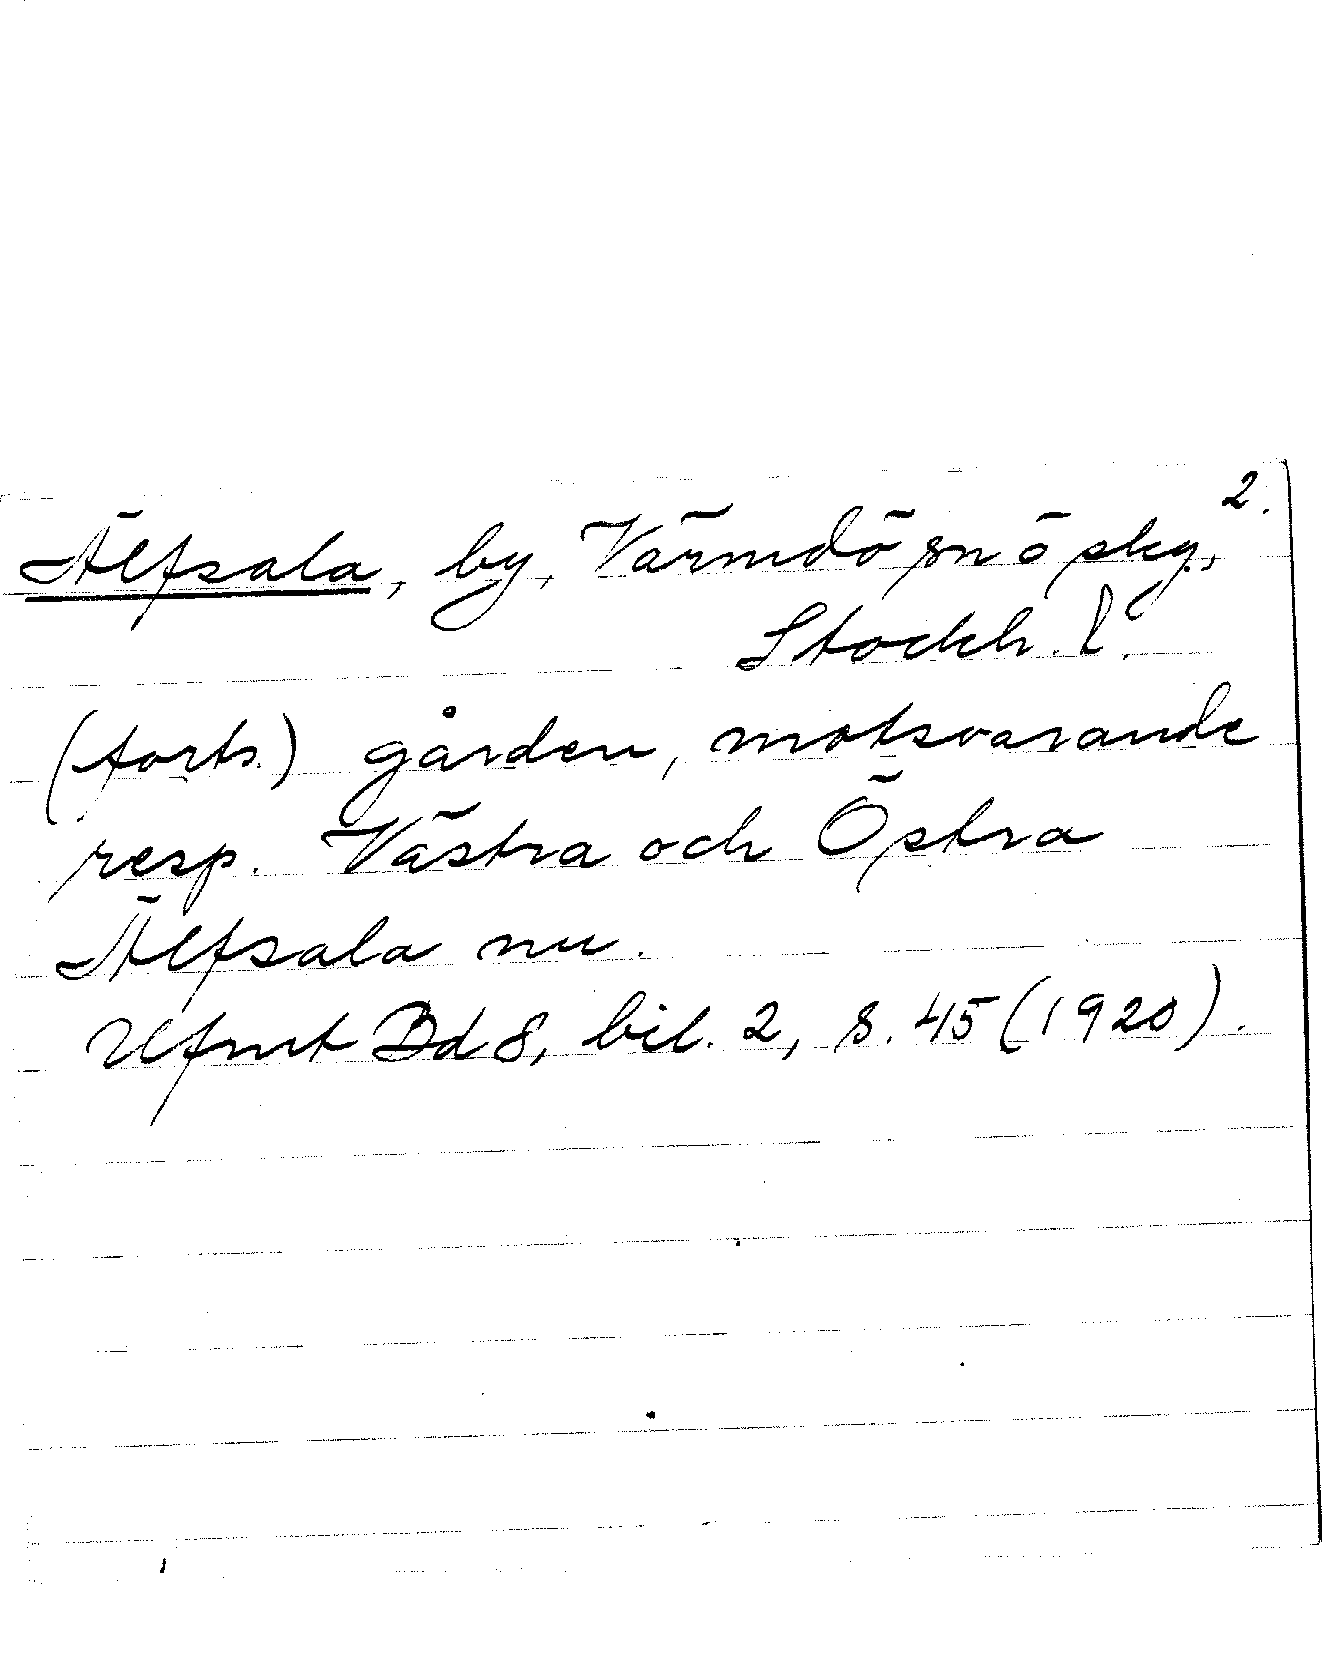 2.
Älfsala, by, Värmdö sn o skg.,
Stockh. l.
(forts.) gården, motsvarande
resp. Västra och Östra
Älfsala nu.
Ufmt Bd 8, bil. 2, s. 45 (1920).